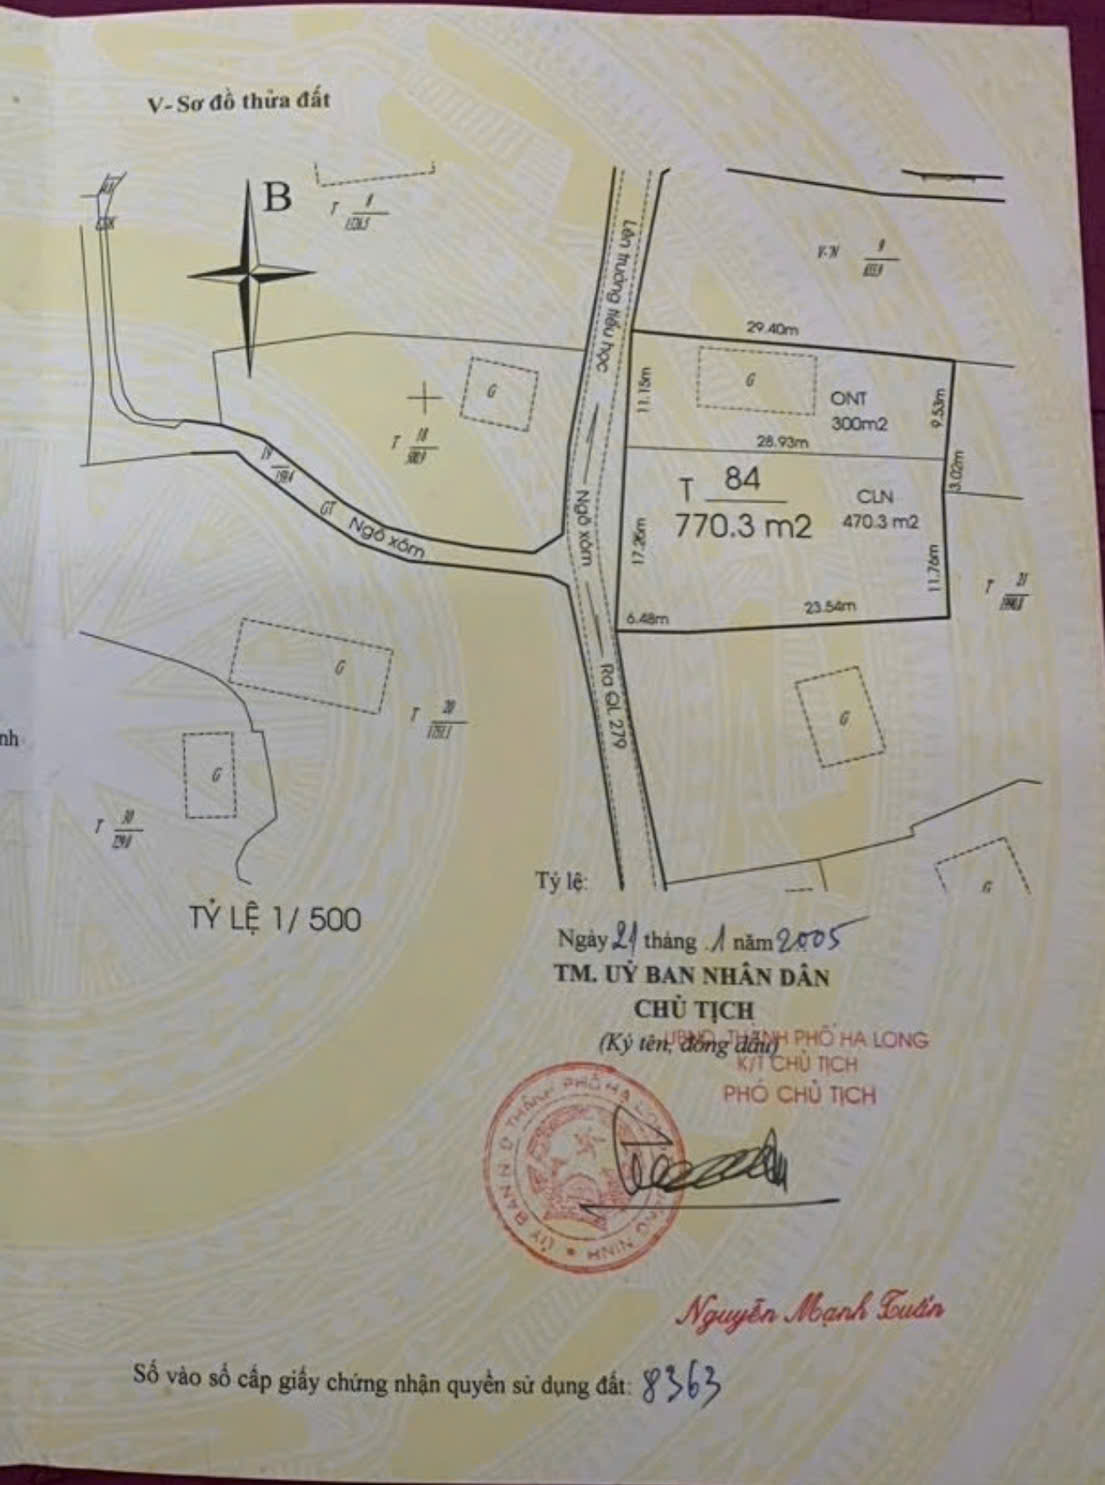 V- Sơ đồ thửa đất
B
T 8
1326.5
Lên trường tiểu học
V-N 9
29.40m
G
11.15m
G
ONT
300m2
9.53m
T 18
500.9
28.93m
3.02m
T 84
770.3 m2
CLN
470.3 m2
19
GT Ngõ xóm
Ngõ xóm
17.26m
11.76m
T 21
6.48m
23.54m
G
T 20
1751.1
Ra QL 279
G
nh
G
T 30
729.0
G
Tỷ lệ:
TỶ LỆ 1/ 500
Ngày 21 tháng 1 năm 2005
TM. UỶ BAN NHÂN DÂN
CHỦ TỊCH
(Ký tên, đóng dấu)
UBND THÀNH PHỐ HẠ LONG
K/T CHỦ TỊCH
PHÓ CHỦ TỊCH
ỦY BAN N D THÀNH PHỐ HẠ LONG
NINH
Nguyễn Mạnh Tuấn
Số vào sổ cấp giấy chứng nhận quyền sử dụng đất: 8363